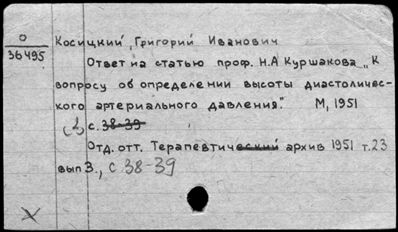 О
36495
Косицкий, Григорий Иванович
Ответ на статью проф. Н.А Куршакова „К
вопросу об определении высоты диастоличес-
кого артериального давления". М, 1951
с. 38-39
Отд. отт. Терапевтический архив 1951 т.23
вып 3., с 38-39